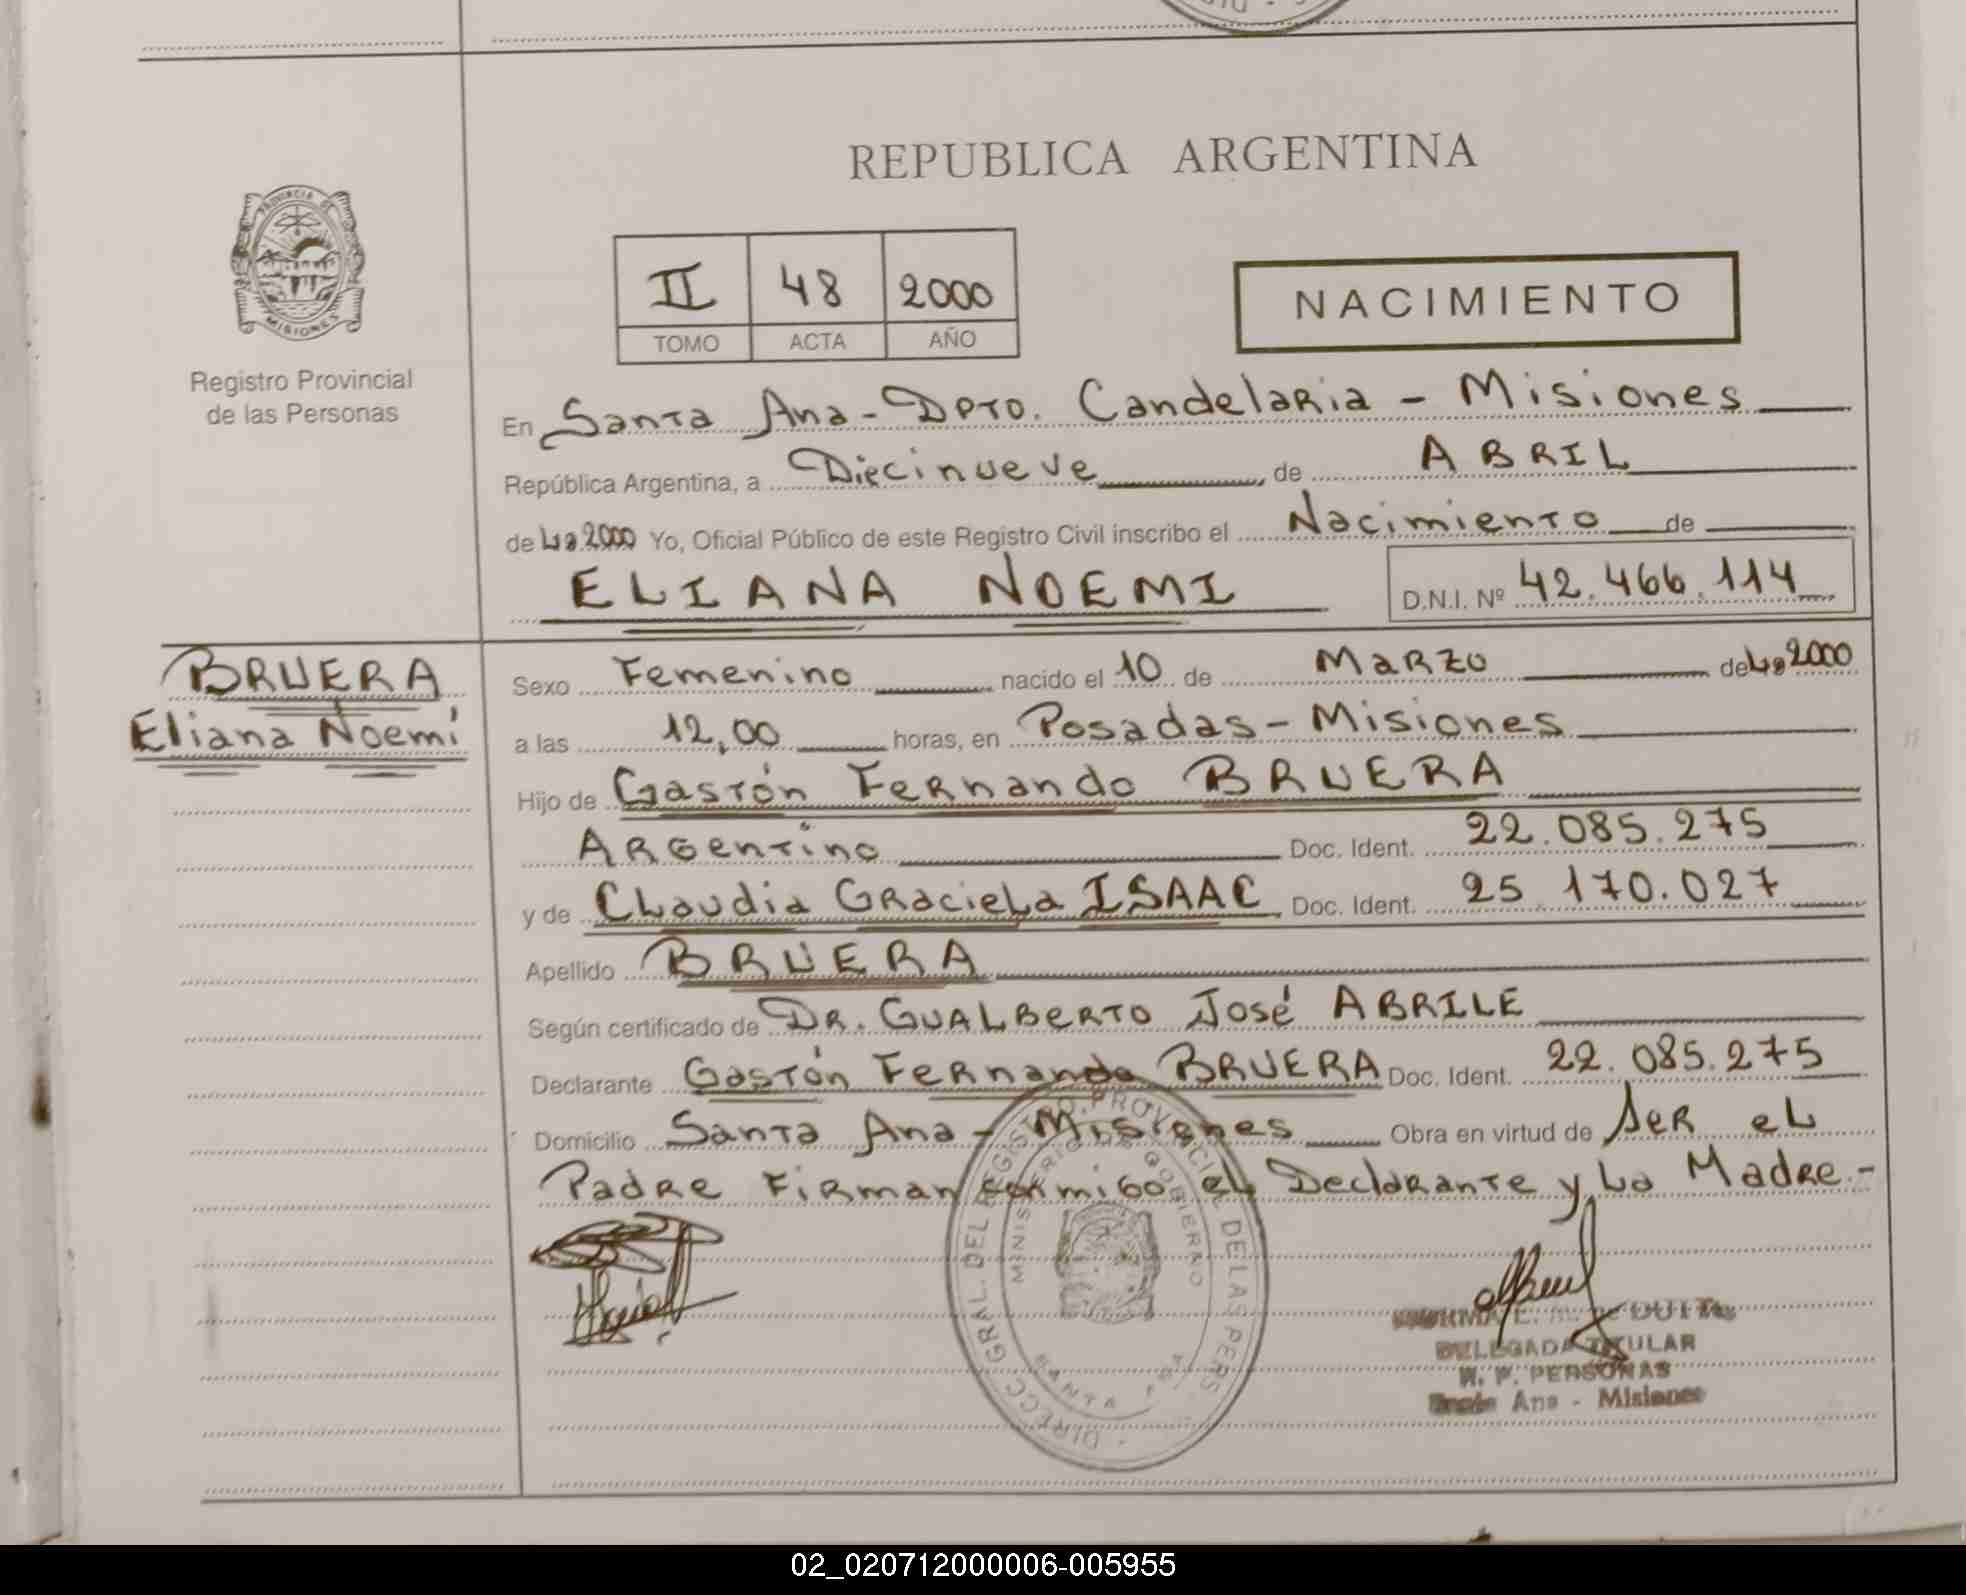 REPUBLICA ARGENTINA
PROVINCIA DE MISIONES
Registro Provincial
de las Personas
II 48 2000
TOMO ACTA AÑO
NACIMIENTO
En Santa Ana - Dpto. Candelaria - Misiones
República Argentina, a Diecinueve de ABRIL
de 2000 Yo, Oficial Público de este Registro Civil inscribo el Nacimiento de
ELIANA NOEMI D.N.I. Nº 42.466.114
BRUERA
Eliana Noemí
Sexo Femenino nacido el 10 de Marzo de 2000
a las 12,00 horas, en Posadas - Misiones
Hijo de Gastón Fernando BRUERA
Argentino Doc. Ident. 22.085.275
y de Claudia Graciela ISAAC Doc. Ident. 25.170.027
Apellido BRUERA
Según certificado de DR. GUALBERTO José ABRILE
Declarante Gastón Fernando BRUERA Doc. Ident. 22.085.275
Domicilio Santa Ana - Misiones Obra en virtud de Ser el
Padre Firman conmigo el Declarante y La Madre.-
DIRECC. GRAL. DEL REGISTRO PROVINCIAL DE LAS PERS.
MINISTERIO DE GOBIERNO
SANTA ANA
DELEGADA TITULAR
R. P. PERSONAS
Santa Ana - Misiones
02_020712000006-005955